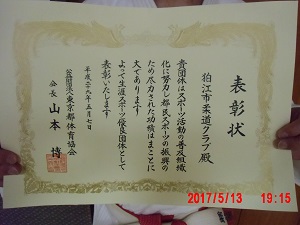 表彰状
狛江市柔道クラブ殿
貴団体はスポーツ活動の普及組織
化に努力し都民スポーツの振興の
ため尽力された功績はまことに
大であります
よって生涯スポーツ優良団体として
表彰いたします
平成二九年五月七日
公益財団法人東京都体育協会
会長 山本博
2017/5/13 19:15